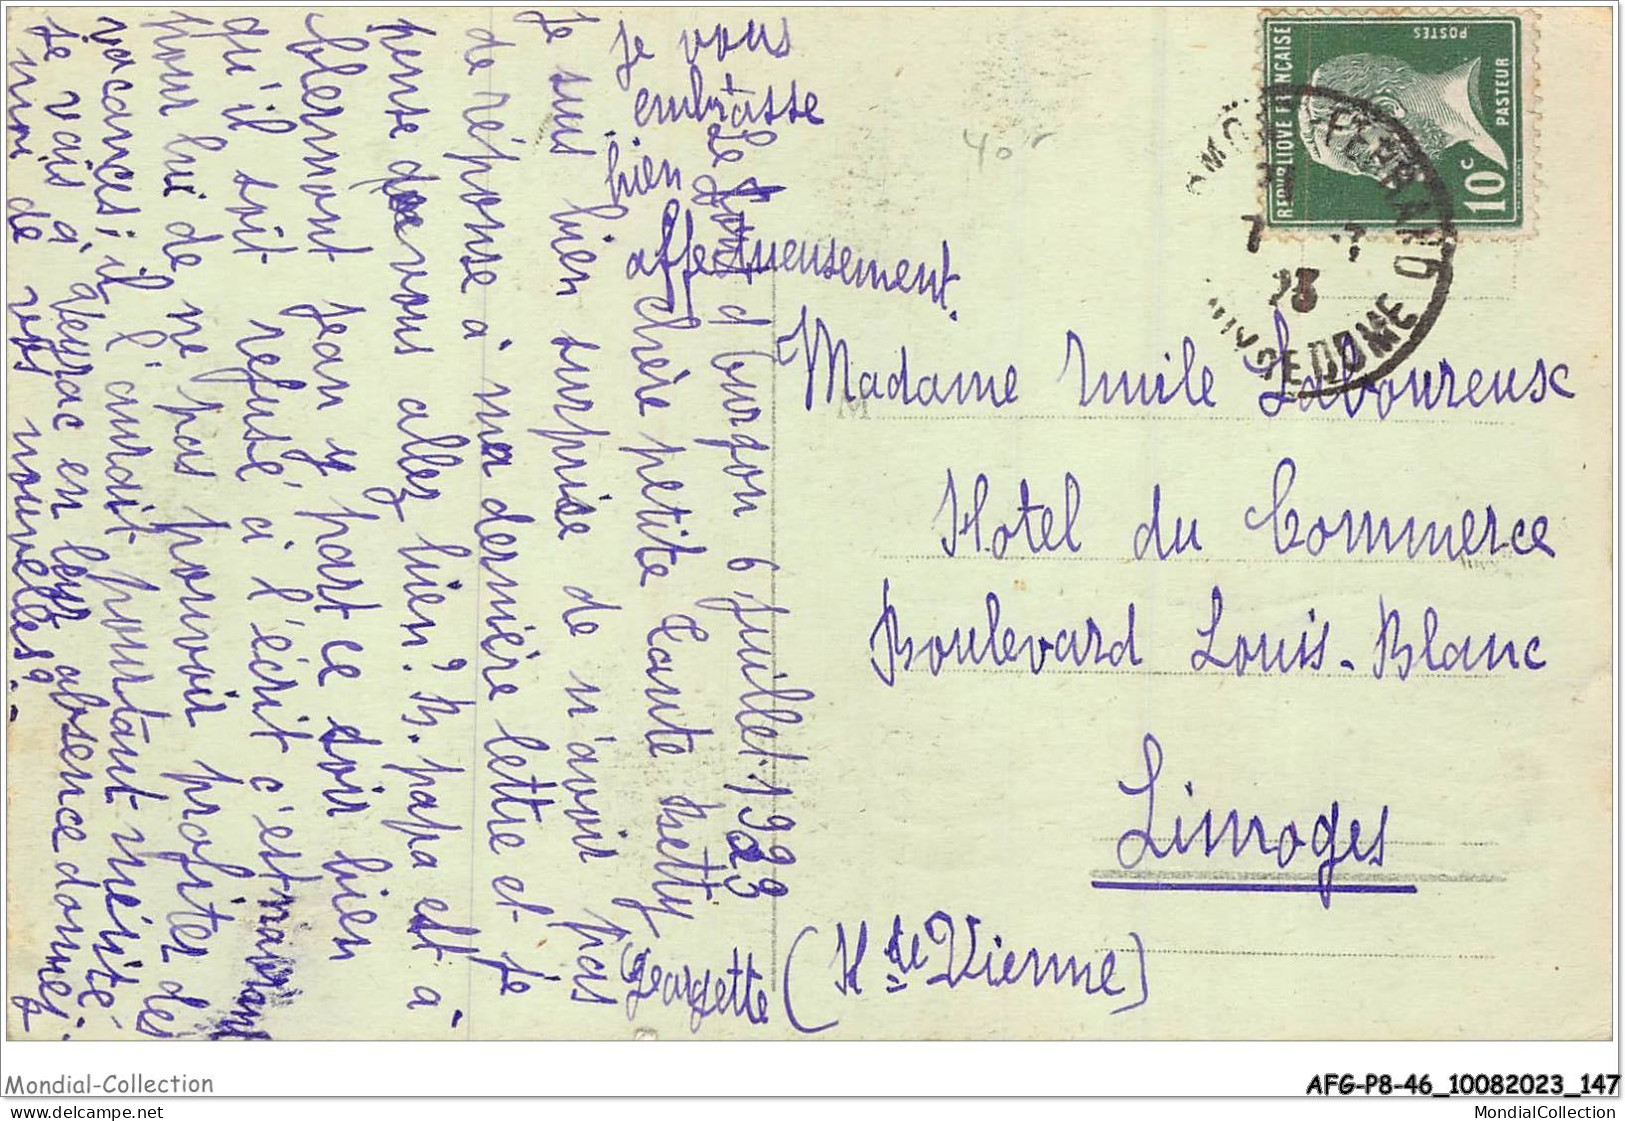 Le Font d'burzon 6 juillet 1923
chère petite Tante Betty
Je suis bien surprise de n'avoir pas
de réponse à ma dernière lettre et je
pense que vous allez bien? M. papa est à
blermont jean y part ce soir bien
qu'il soit refusé à l'écrit c'est navrant
pour lui de ne pas pouvoir profiter des
vacances; il l'aurait pourtant mérité.
je vais à Meyrac en leur absence donnez
moi de vos nouvelles?
je vous
embrasse
bien
affectueusement.
Georgette
Madame Emile Laboureuse
Hotel du Commerce
Boulevard Louis-Blanc
Limoges
(Hte Vienne)
REPUBLIQUE FRANÇAISE
POSTES
PASTEUR
10c
FERRAND
7
23
PUY DE DOME
M
40
Mondial-Collection
AFG-P8-46_10082023_147
Mondial-collection.delcampe.net
MondialCollection